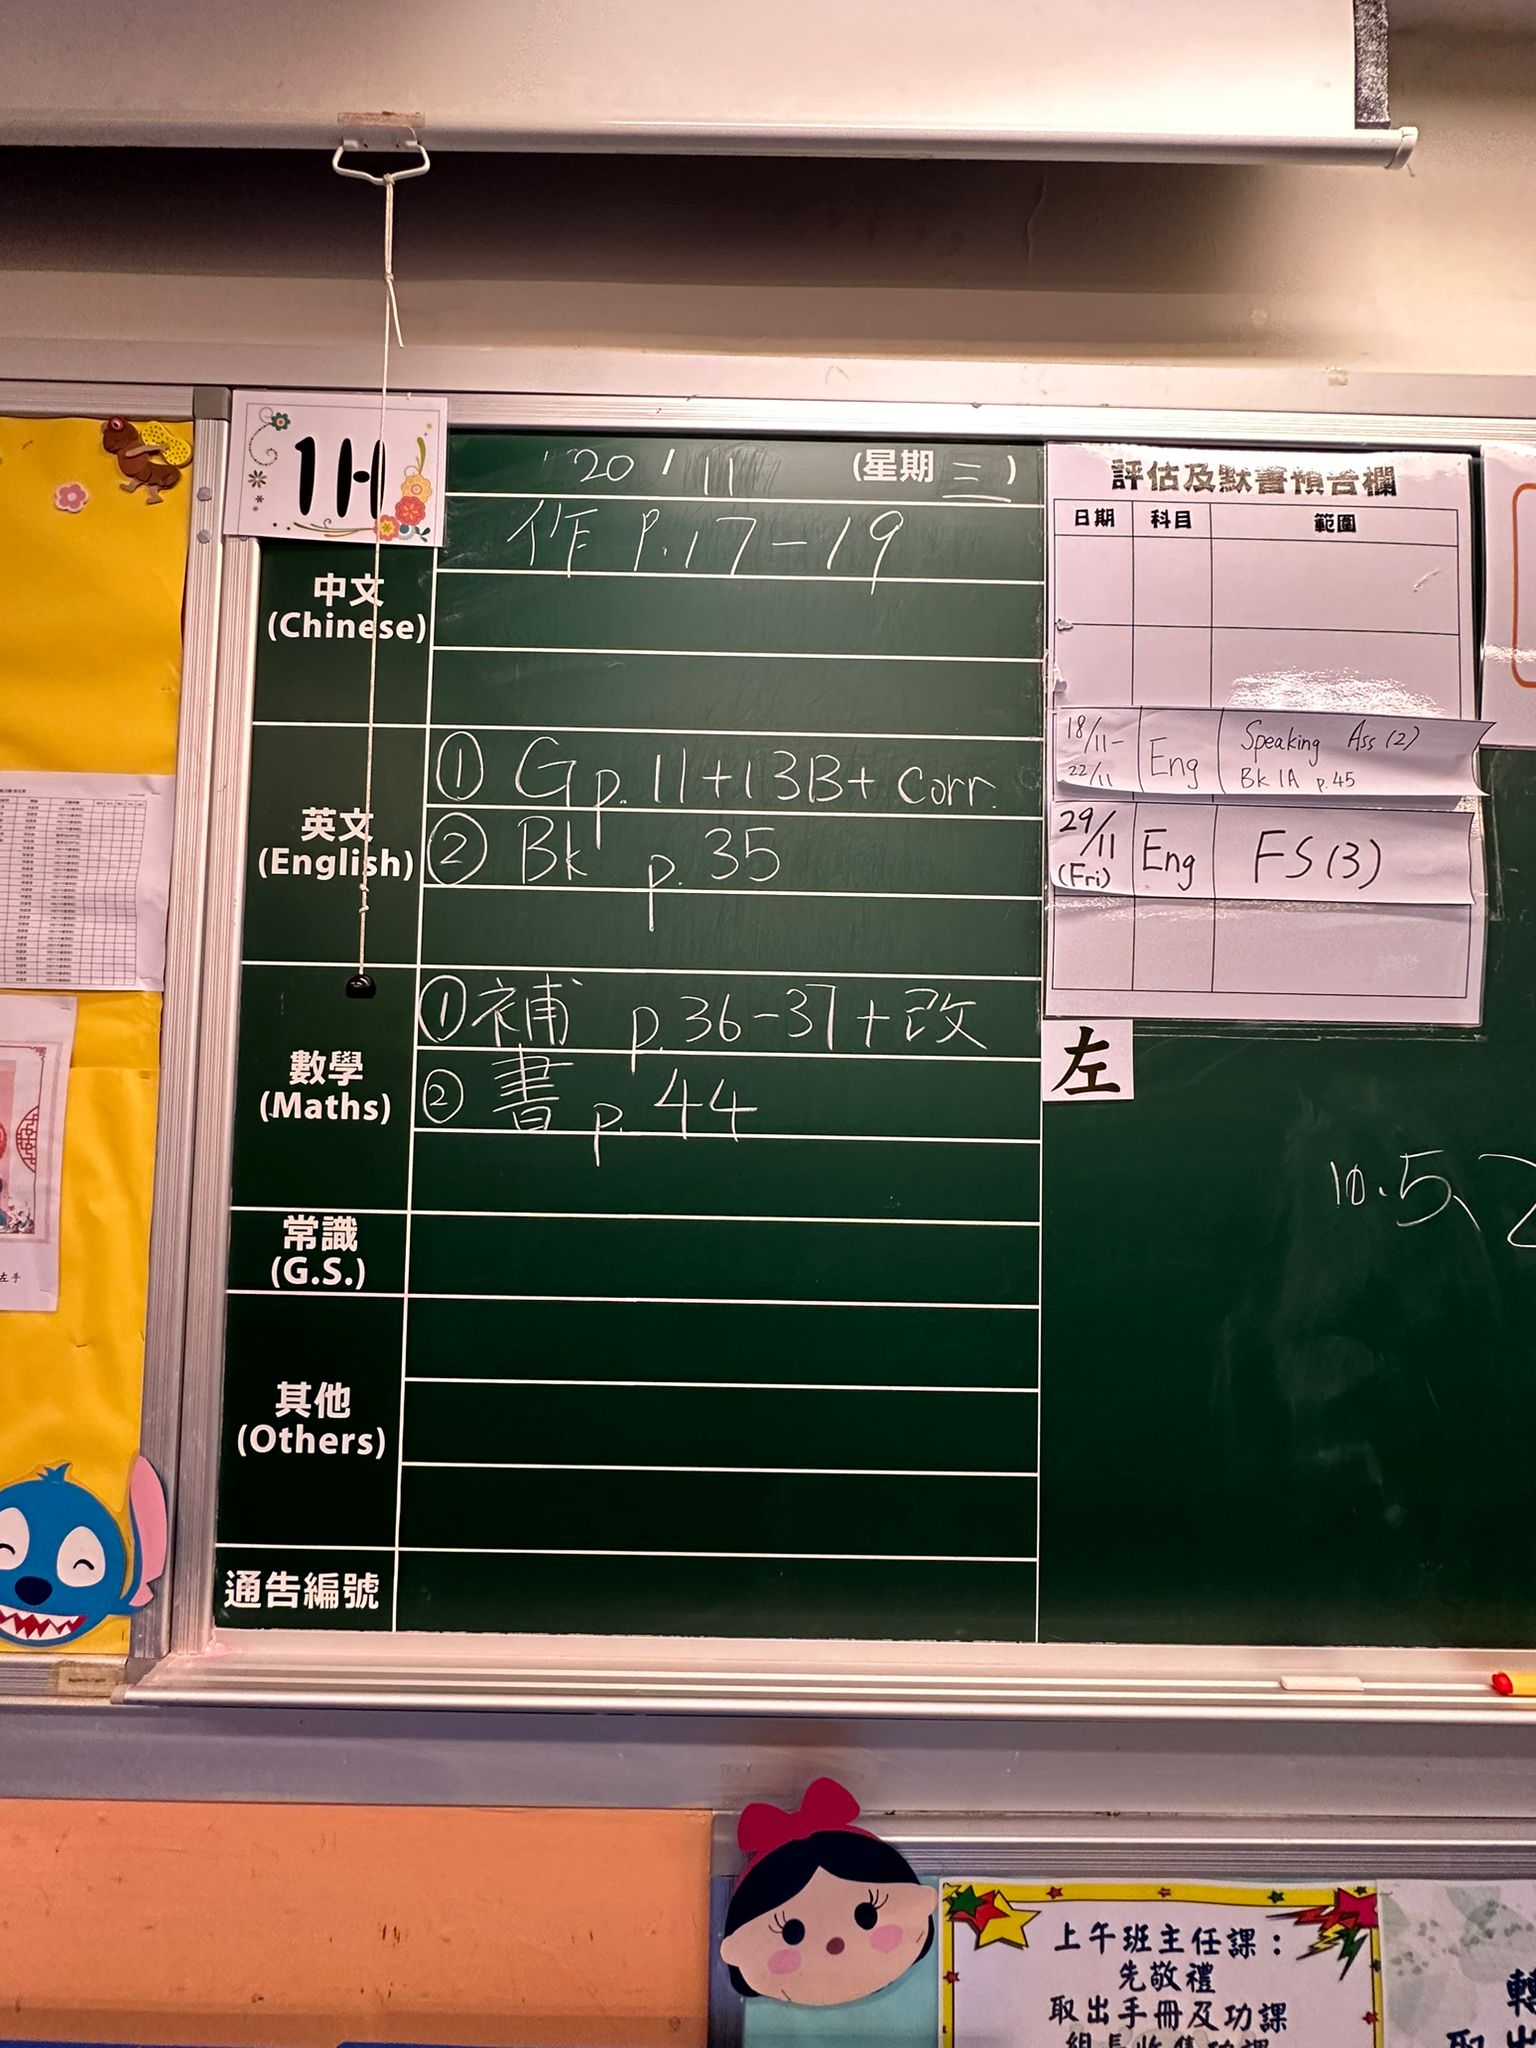 1H
20 / 11 (星期三)
中文
(Chinese)
作 P.17-19
英文
(English)
① G p.11+13B+ corr.
② Bk p.35
數學
(Maths)
① 補 p.36-37+改
② 書 p.44
常識
(G.S.)
其他
(Others)
通告編號
評估及默書預告欄
日期 科目 範圍
18/11-22/11 Eng Speaking Ass (2)
Bk 1A p.45
29/11 (Fri) Eng FS(3)
左
10.5、2
左手
上午班主任課：
先敬禮
取出手冊及功課
組長收集功課